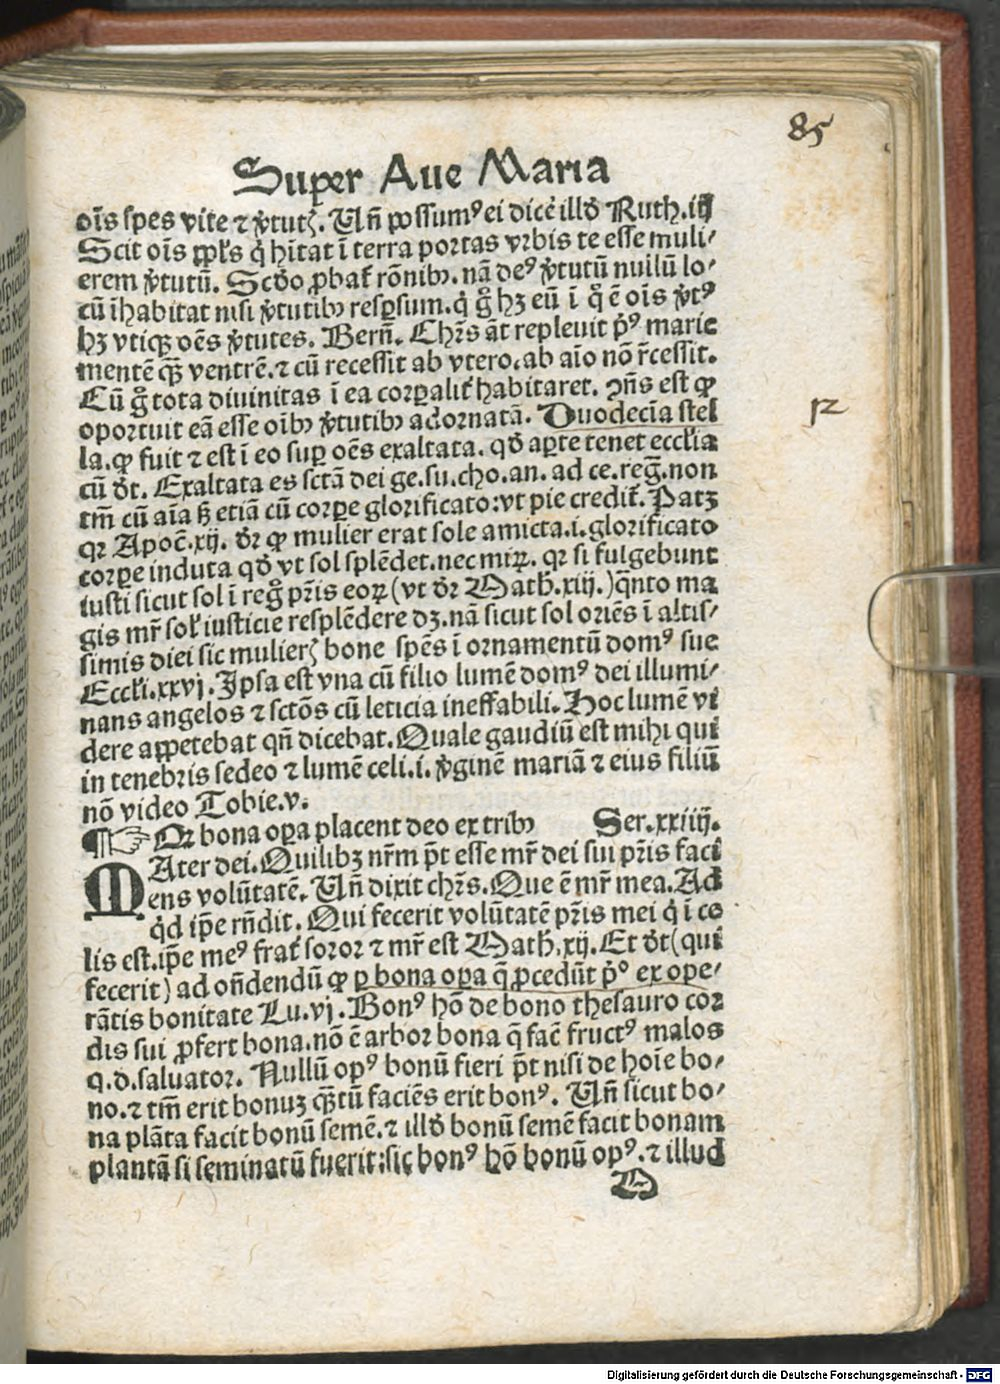 85
Super Aue Maria
oı̄s spes vite ⁊ v̓tutꝭ. Un̄ possumꝰ ei dicē illđ Ruth.iij
Scit oı̄s ppl̓s q̇ hı̄tat ı̄ terra portas vrbis te esse muli⸗
erem v̓tutū. Scđo ꝓbat̓ rōnibꝫ. nā deꝰ v̓tutū nullū lo⸗
cū īhabitat nisi v̓tutibꝫ respersum. q̇ g̊ hꝫ eū ı̄ q̊ ē oı̄s v̓tꝰ
hꝫ vtiqꝫ oēs v̓tutes. Bern̄. Chr̄s āt repleuit pꝰ marie
mentē qꝫ̄ ventrē. ⁊ cū recessit ab vtero, ab aı̄o nō r̄cessit.
Cū g̊ tota diuinitas ı̄ ea corꝑalit̓ habitaret. ꝯn̄s est ꝙ
oportuit eā esse oı̄bꝫ v̓tutibꝫ adornatā. Duodecı̄a stel
la. ꝙ fuit ⁊ est ı̄ eo suꝑ oēs exaltata. qđ aꝑte tenet eccl̓ia
cū đt. Exaltata es sctā dei ge. su. cho. an. ad ce. reg̅. non
tm̄ cū aı̄a sꝫ etiā cū corꝑe glorificato: vt pie credit̓. Patꝫ
qꝛ Apoc̄.xij. đr ꝙ mulier erat sole amicta .i. glorificato
corꝑe induta qđ vt sol splēdet. nec mirꝝ. qꝛ si fulgebunt
iusti sicut sol ı̄ reg̊ pr̄is eoꝝ (vt đr Math̄.xiij.) q̄nto ma
gis mr̄ sol̓ iusticie resplēdere dꝫ. nā sicut sol oriēs ı̄ altis⸗
simis diei sic mulierꝭ bone spēs ı̄ ornamentū domꝰ sue
Eccl̓i.xxvj. Ipsa est vna cū filio lumē domꝰ dei illumi⸗
nans angelos ⁊ sctōs cū leticia ineffabili. Hoc lumē vi
dere appetebat qn̄ dicebat. Quale gaudiū est mihi qui
in tenebris sedeo ⁊ lumē celi .i. v̓ginē mariā ⁊ eius filiū
nō video Tobie.v.
12
¶ ☞ Qꝛ bona oꝑa placent deo ex tribꝫ Ser.xxiiij.
MAter dei. Quilibꝫ nr̄m pt̄ esse mr̄ dei sui pr̄is faci
ens volūtatē. Un̄ dixit chr̄s. Que ē mr̄ mea. Ad
q̇d ip̄e rn̄dit. Qui fecerit volūtatē pr̄is mei q̇ ı̄ ce
lis est. ip̄e meꝰ frat̓ soror ⁊ mr̄ est Math̄.xij. Et đt (qui
fecerit) ad on̄dendū ꝙ ꝑ bona oꝑa q̄ ꝓcedūt pꝰ ex ope⸗
rātis bonitate Lu.vj. Bonꝰ hō de bono thesauro cor
dis sui ꝓfert bona. nō ē arbor bona q̄ fac̄ fructꝰ malos
q. d. saluator. Nullū opꝰ bonū fieri pt̄ nisi de hoı̄e bo⸗
no. ⁊ tm̄ erit bonuꝫ qꝫ̄tū faciēs erit bonꝰ. Un̄ sicut bo⸗
na plāta facit bonū semē. ⁊ illđ bonū semē facit bonam
plantā si seminatū fuerit: sic bonꝰ hō bonū opꝰ. ⁊ illud
Digitalisierung gefördert durch die Deutsche Forschungsgemeinschaft - DFG